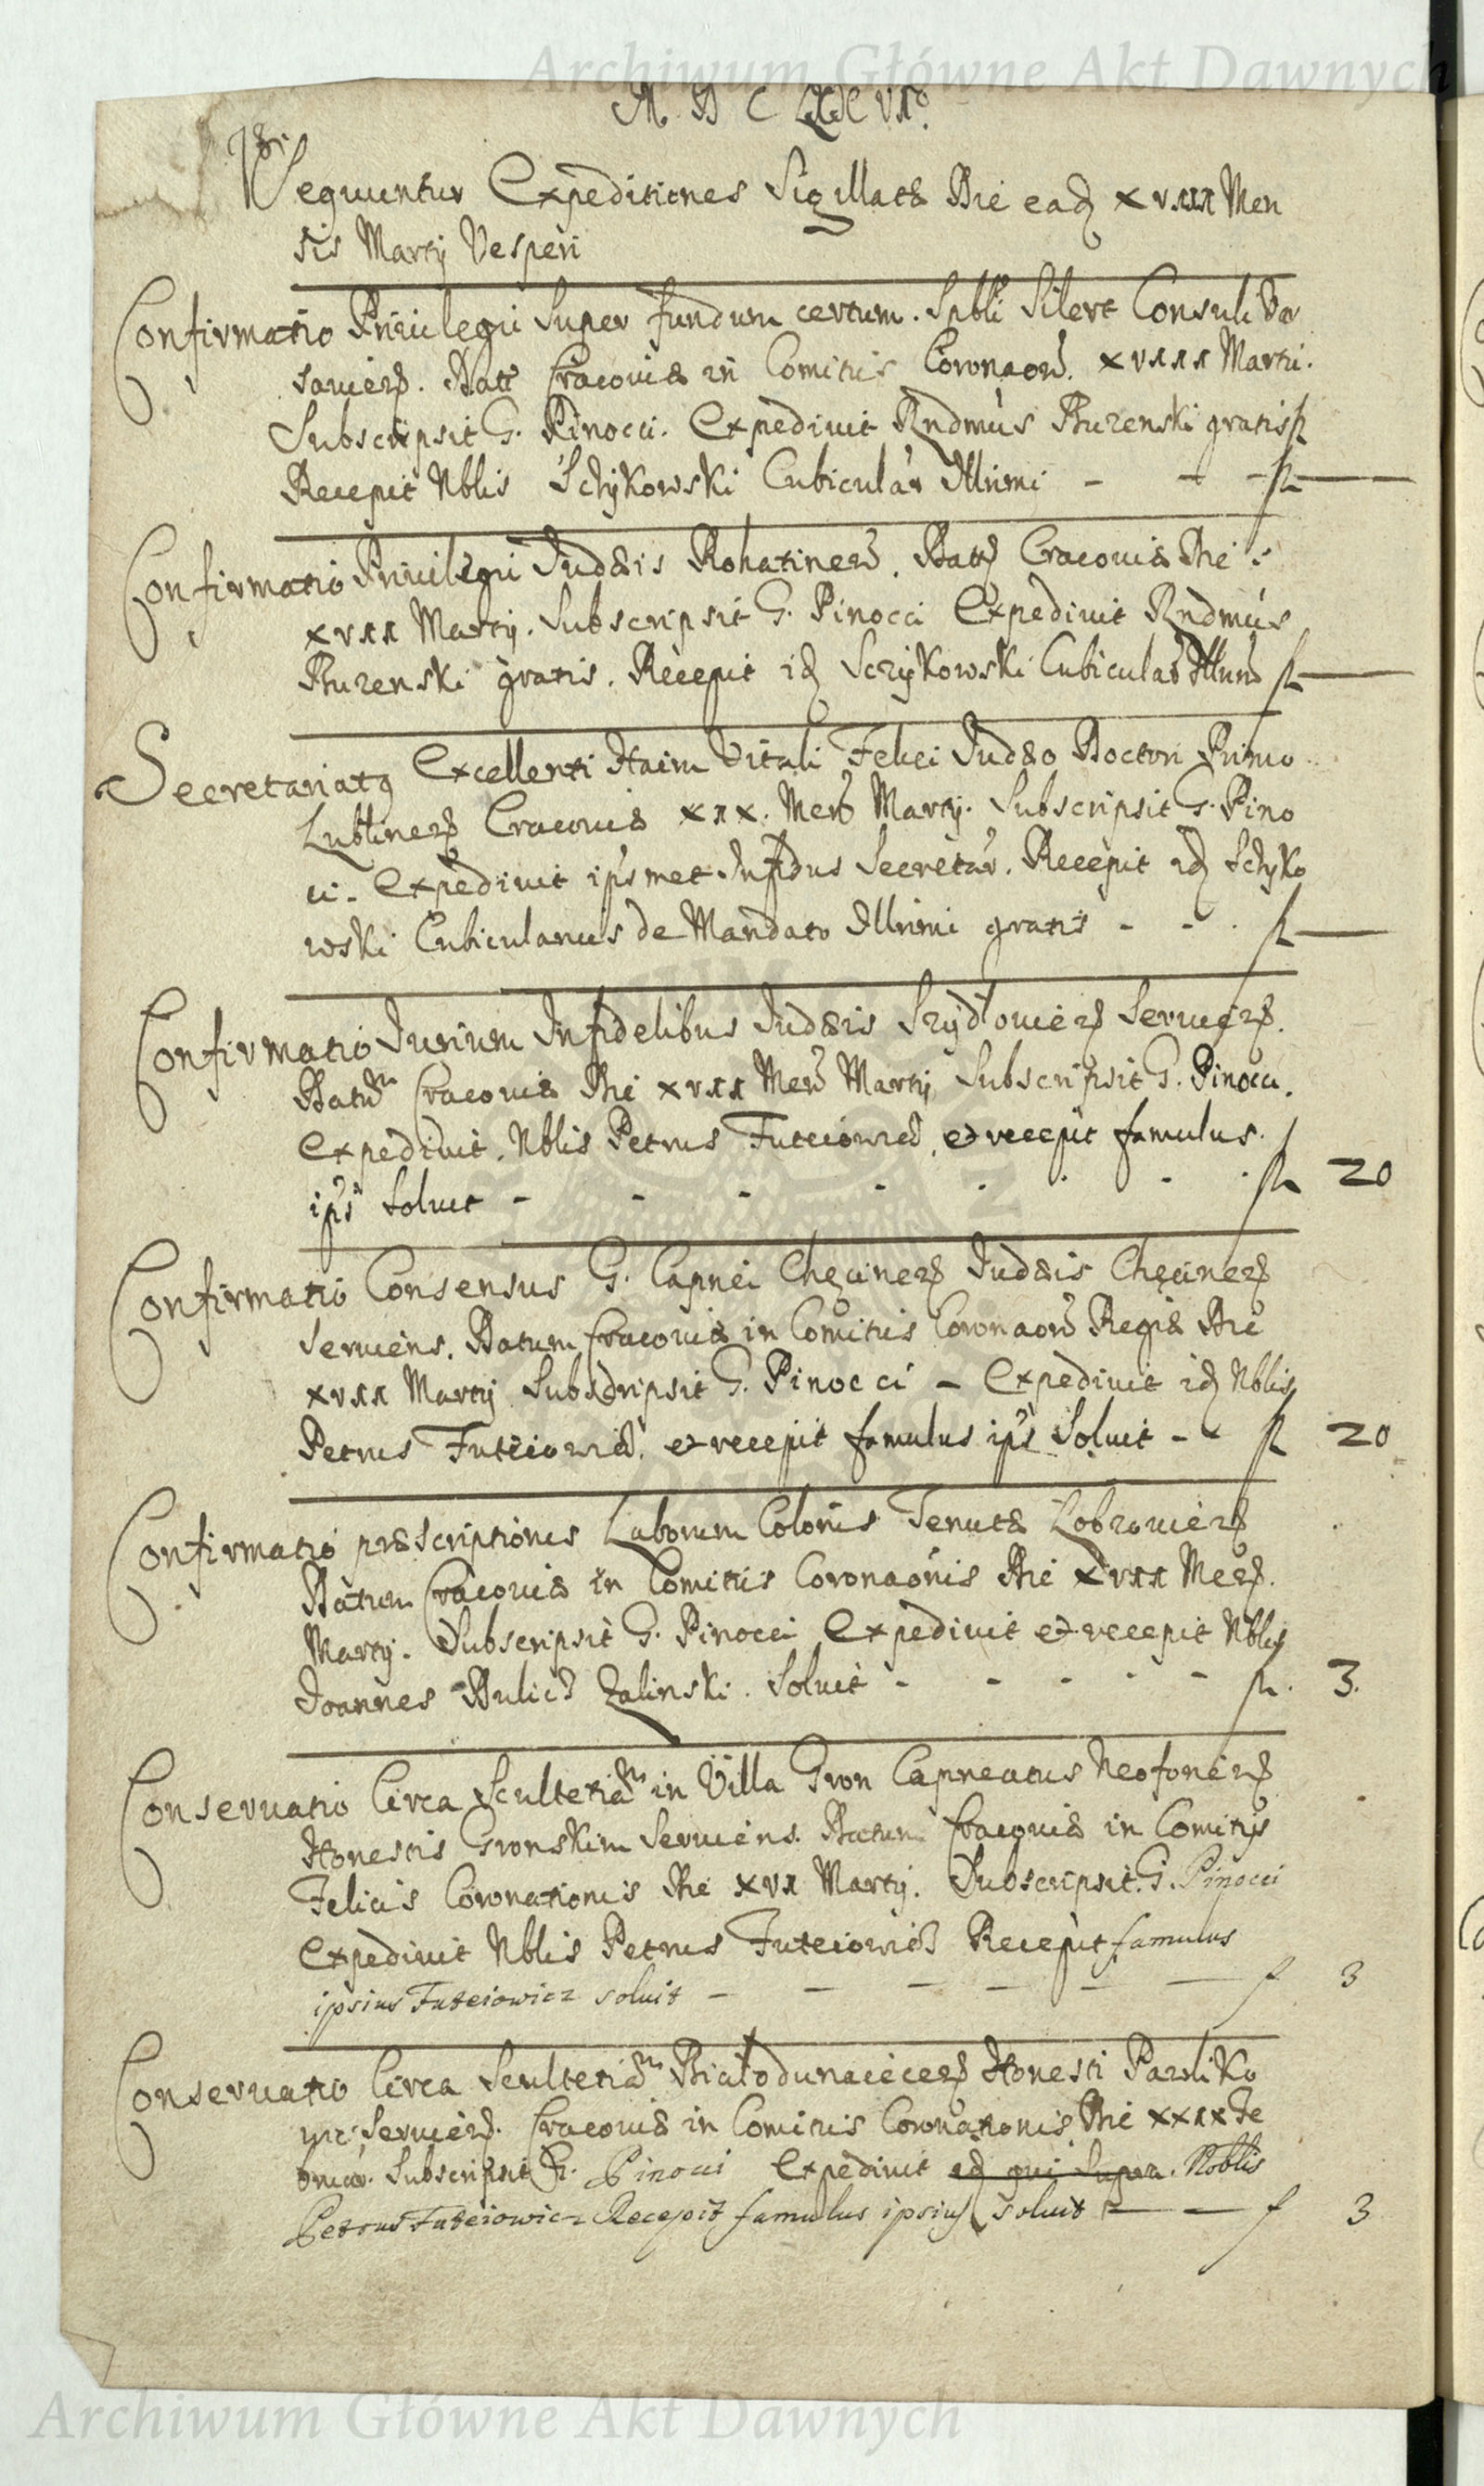 Archiwum Główne Akt Dawnych
M D C LXXVI
Sequuntur Expeditiones Sigillatæ Die ead xviii Men
sis Martij Vesperi
Confirmatio Priuilegii Super fundum certum. Spbli Silert Consuli Va
Datt Cracouiæ in Comitiis Coronaõn. xviii Martii.
Subscripsit G. Pinocci. Expediuit Rndmus Burenski gratis fl
Recepit Nblis Sczykowski Cubicular Illrimi - - - fl —
Confirmatio Priuilegii Judæis Rohatinen. Datt Cracouiæ Die
xvii Martij. Subscripsit G. Pinocci Expediuit Rndmus
Burenski gratis. Recepit id Sczykowski Cubicular Illrimi fl —
Secretariatq Excellenti Haim Vitali Felici Judæo Doctori Primo
Lublinens Cracouiæ xix. Mens Martij. Subscripsit G. Pino
ci. Expediuit ipsmet Infidus Secretar. Recepit id Sczyko
wski Cubicularius de Mandato Illrimi gratis - - . fl —
Confirmatio Jurium Infidelibus Judæis Szydłouiens Seruiens.
Datum Cracouiæ Die xvii Mens Martij Subscripsit G. Pinocci.
Expediuit. Nblis Petrus Futeiowicz, et recepit famulus
ipsi soluit - - - - - - - fl 20
Confirmatio Consensus G. Capnei Chęcinens Judæis Chęcinens
Seruiens. Datum Cracouiæ in Comitiis Coronaõn Regiæ Die
xvii Martij Subscripsit G. Pinocci — Expediuit id Nblis
Petrus Futeiowicz. et recepit famulus ipsi Soluit - - fl 20
Confirmatio præscriptionis Laborum Colonis Tenutæ Łobzouiens
Datum Cracouiæ in Comitiis Coronaõnis Die xvii Mens.
Martij. Subscripsit G. Pinocci Expediuit et recepit Nblis
Joannes Zalinski. Soluit - - - - - fl. 3.
Conseruatio Circa Scultetiam in Villa Gron Capneatus Neoforiens
Honestis Gronskim Seruiens. Datum Cracouiæ in Comitijs
Felicis Coronationis Die xvi Martij. Subscripsit G. Pinocci
Expediuit Nblis Petrus Futeiowicz Recepit famulus
ipsius Futeiowicz soluit — — — — — — f 3
Conseruatio Circa Scultetiam Białodunaiecens Honesti Pawliko
Seruiens. Cracouiæ in Comitiis Coronationis Die
Subscripsit G. Pinocci Expediuit id qui supra. Noblis
Petrus Futeiowicz Recepit famulus ipsius soluit — — f 3
Archiwum Główne Akt Dawnych